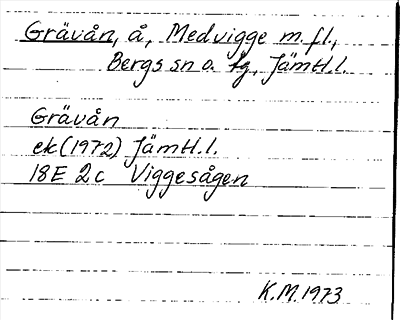 Grävån, å, Medvigge m.fl.,
Bergs sn o. tg, Jämtl.l.
Grävån
ek (1972) Jämtl.l.
18E 2c Viggesågen
K.M. 1973